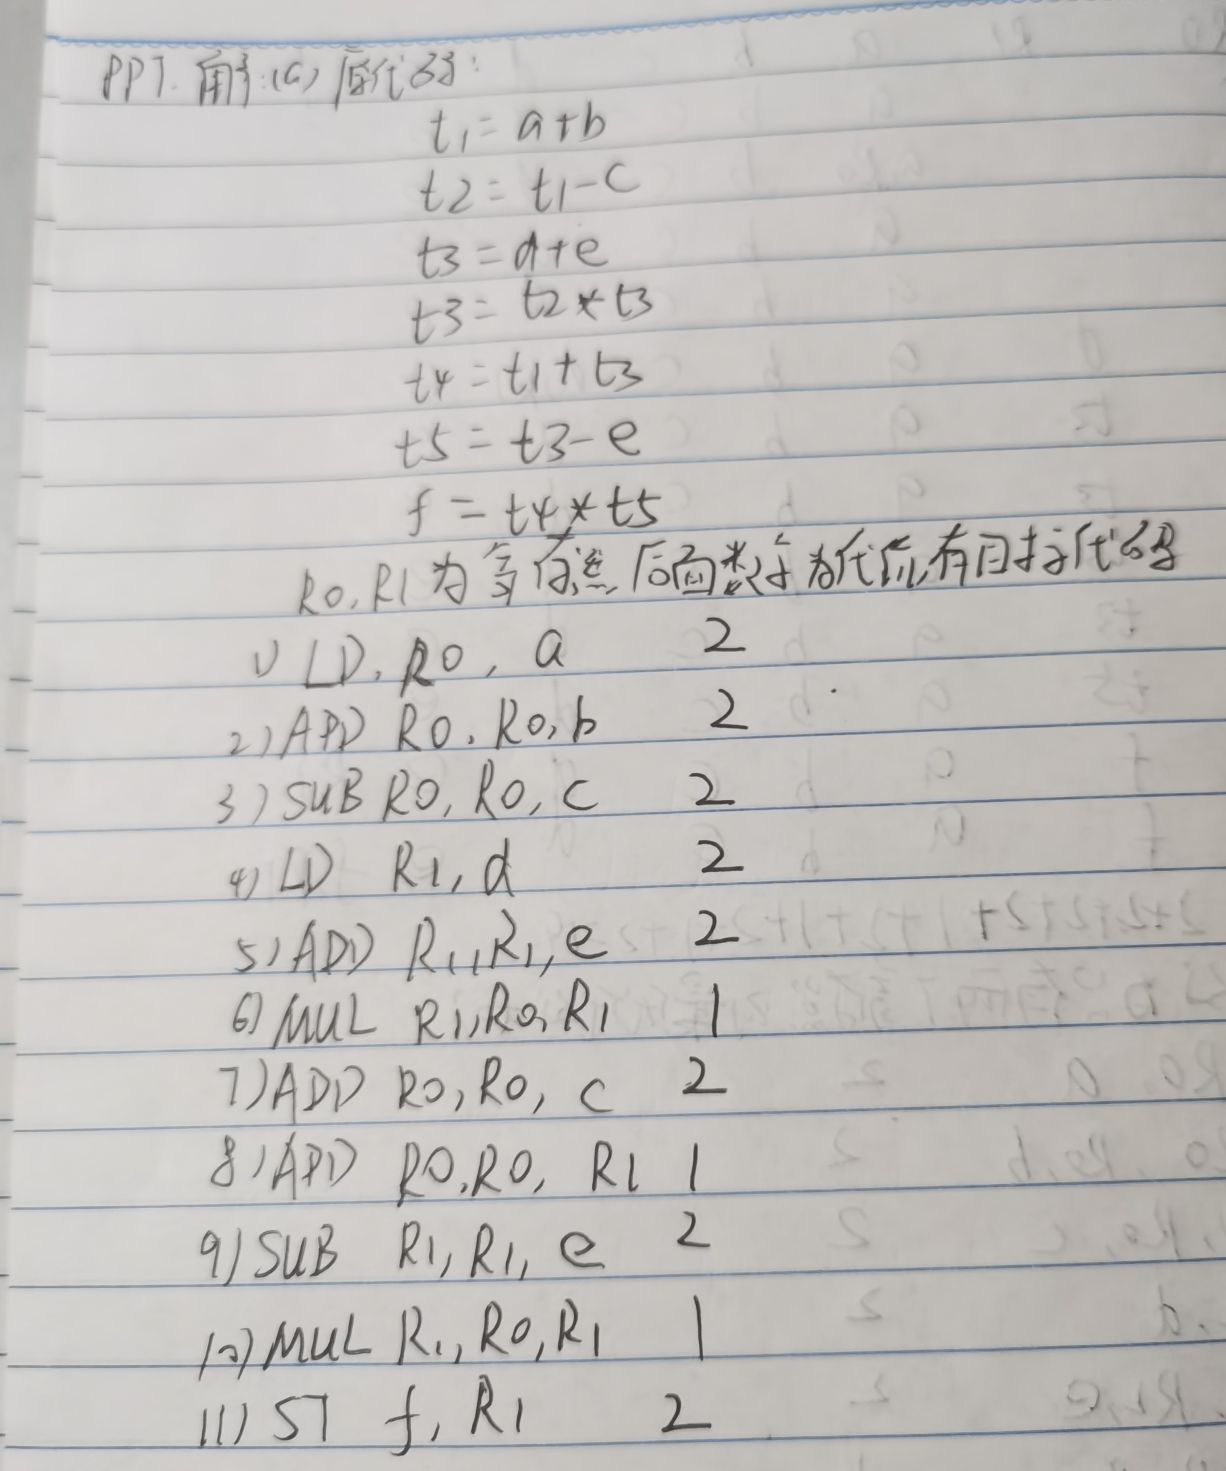 PPT. 解:(c) 原代码:
t1 = a+b
t2 = t1-c
t3 = d+e
t3 = t2*t3
t4 = t1+t3
t5 = t3-e
f = t4*t5
R0, R1为寄存器 后面数字为代价,有目标代码
1) LD. R0, a 2
2) ADD R0, R0, b 2
3) SUB R0, R0, c 2
4) LD R1, d 2
5) ADD R1, R1, e 2
6) MUL R1, R0, R1 1
7) ADD R0, R0, c 2
8) ADD R0, R0, R1 1
9) SUB R1, R1, e 2
10) MUL R1, R0, R1 1
11) ST f, R1 2